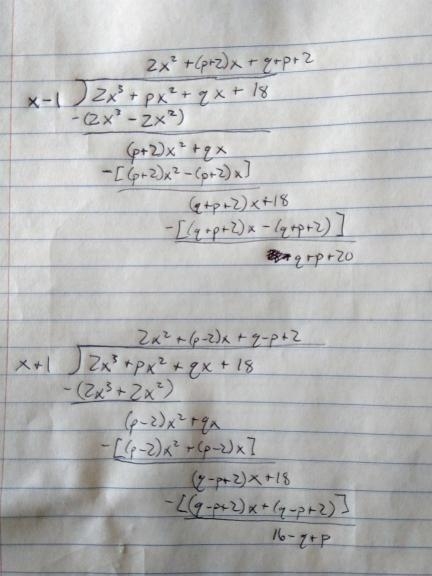 2x² + (p+2)x + q+p+2
x-1 ) 2x³ + px² + qx + 18
-(2x³ - 2x²)
(p+2)x² + qx
-[(p+2)x² - (p+2)x]
(q+p+2)x + 18
-[(q+p+2)x - (q+p+2)]
q+p+20
2x² + (p-2)x + q-p+2
x+1 ) 2x³ + px² + qx + 18
-(2x³ + 2x²)
(p-2)x² + qx
-[(p-2)x² + (p-2)x]
(q-p+2)x + 18
-[(q-p+2)x + (q-p+2)]
16-q+p